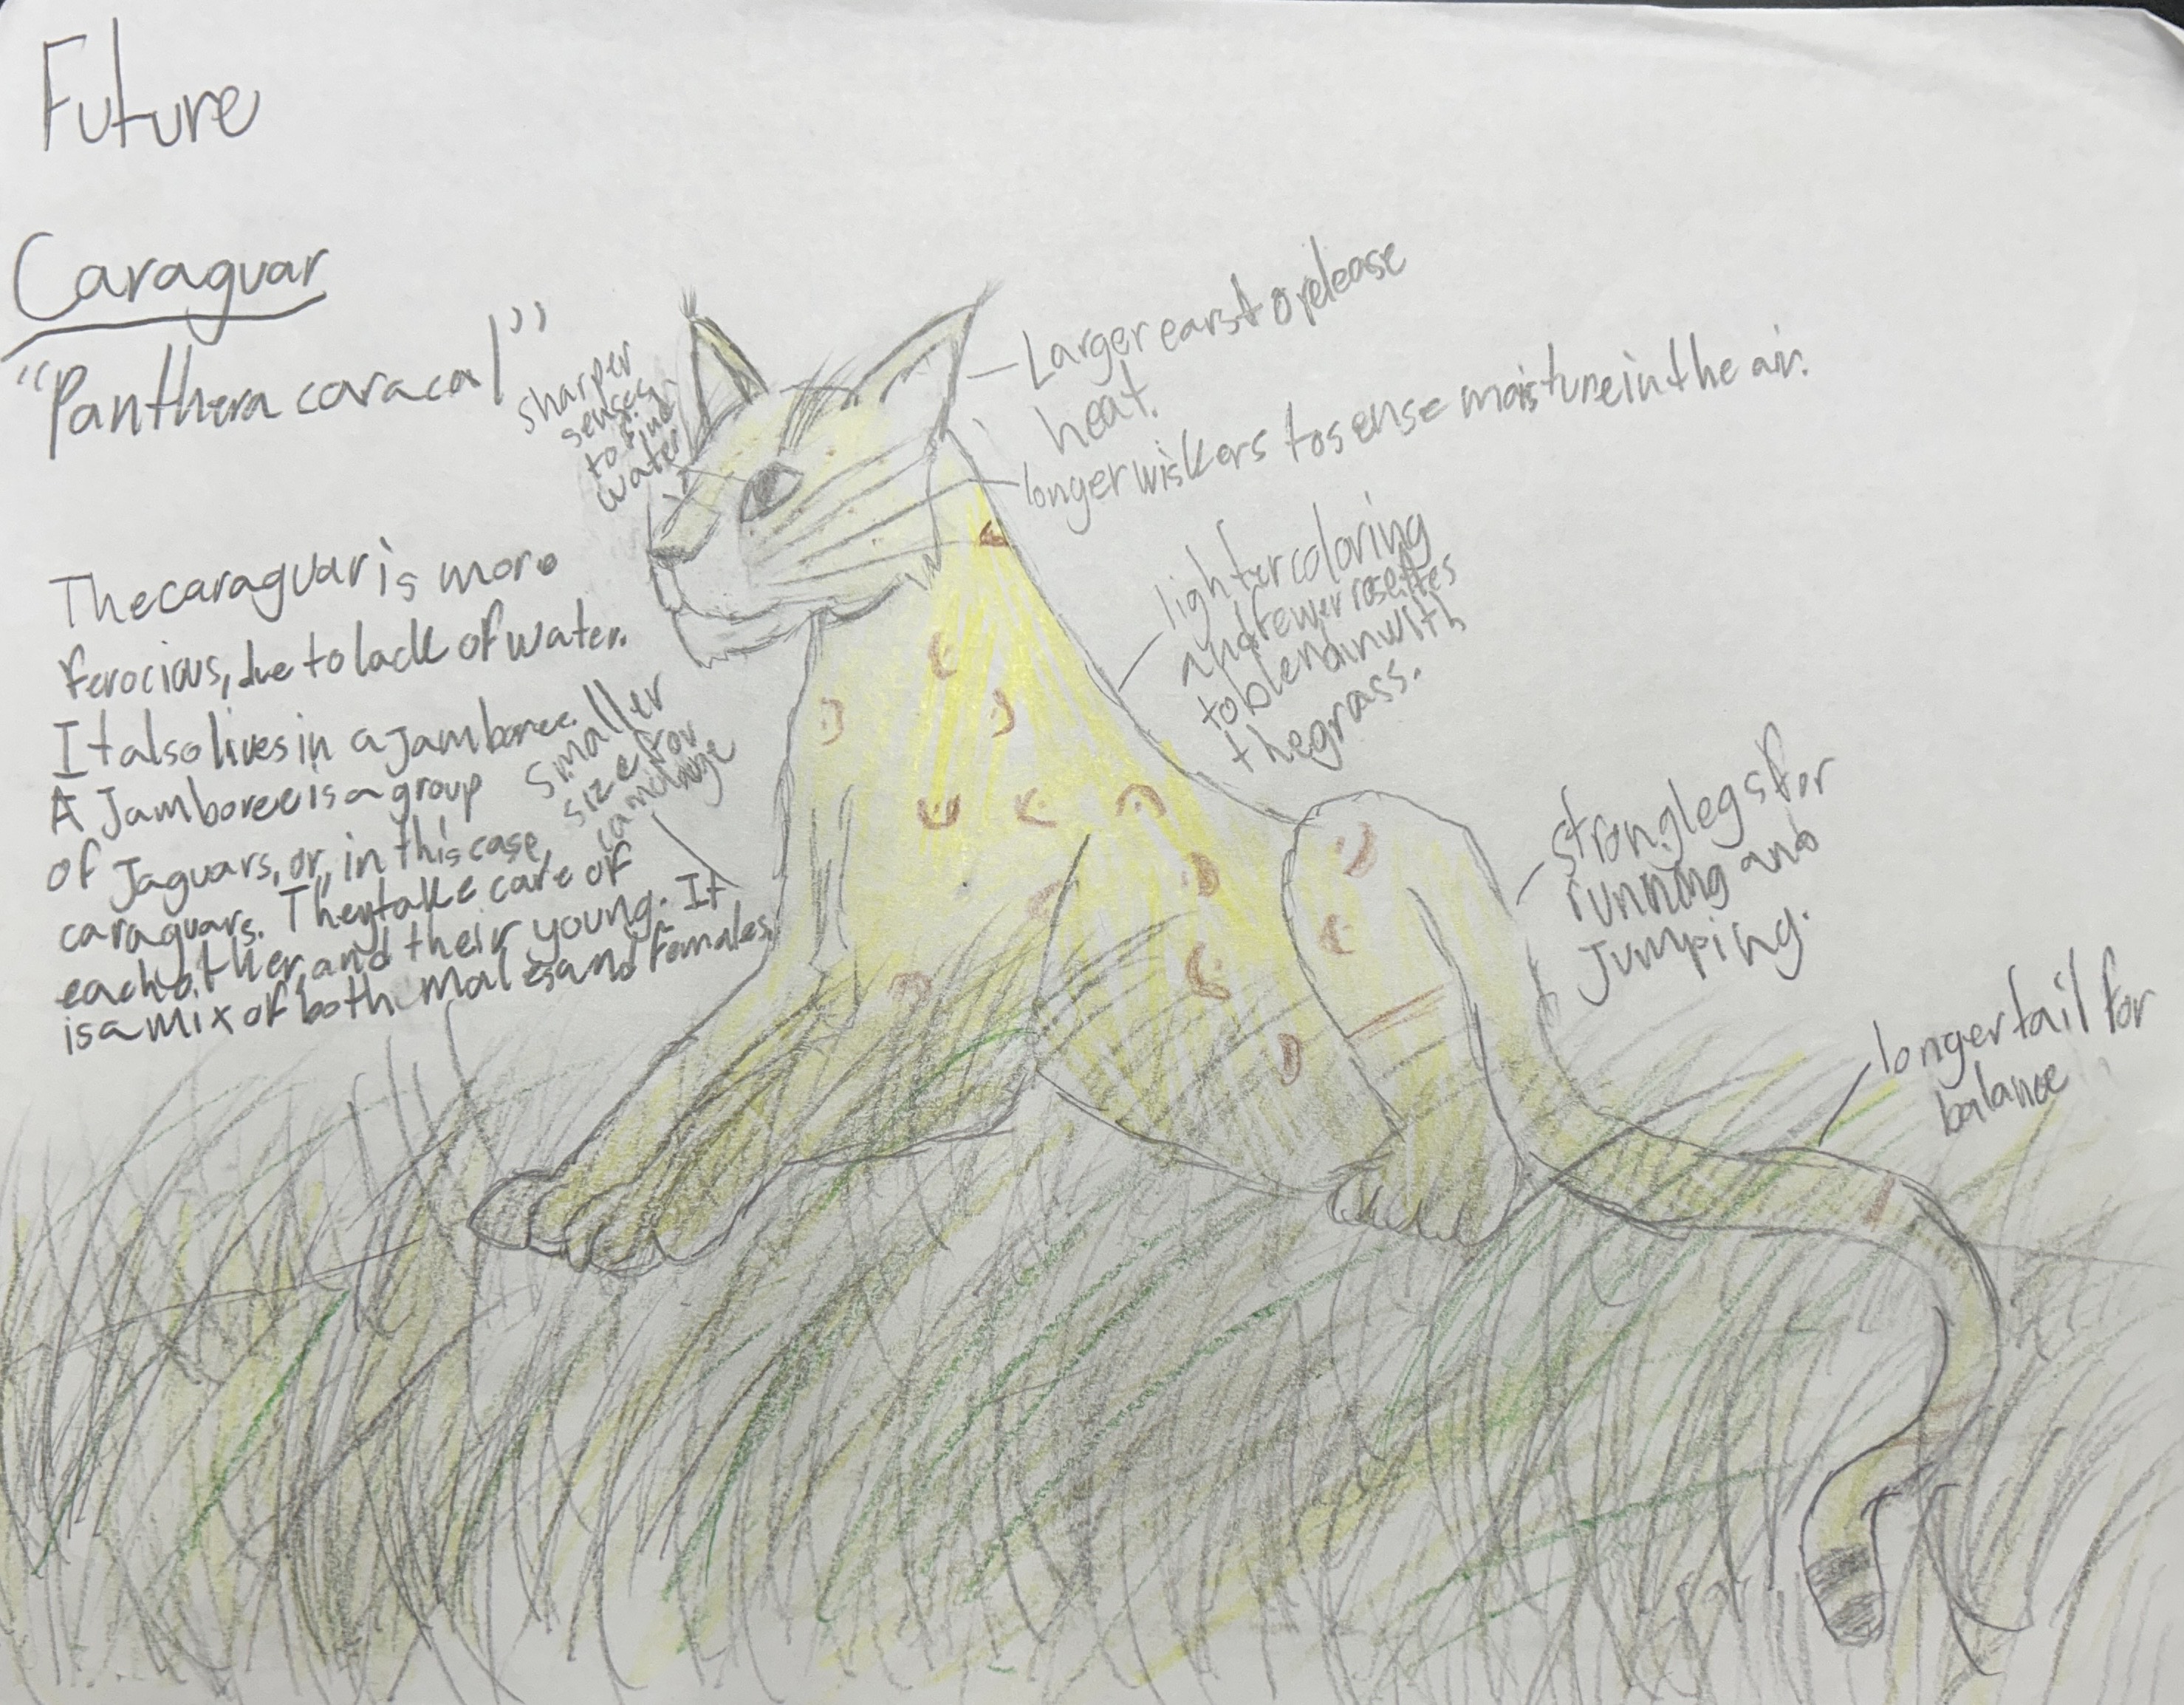 Future
Caraguar
"Panthera caracal"
sharper
senses
to find
water
Larger ears to release
heat.
longer wiskers to sense moisture in the air.
lighter coloring
and fewer rosettes
to blend in with
the grass.
The caraguar is more
ferocious, due to lack of water.
It also lives in a jamboree.
A Jamboree is a group
of Jaguars, or, in this case,
caraguars. They take care of
each other, and their young. It
is a mix of both males and females.
smaller
size for
camouflage
strong legs for
running and
Jumping.
longer tail for
balance